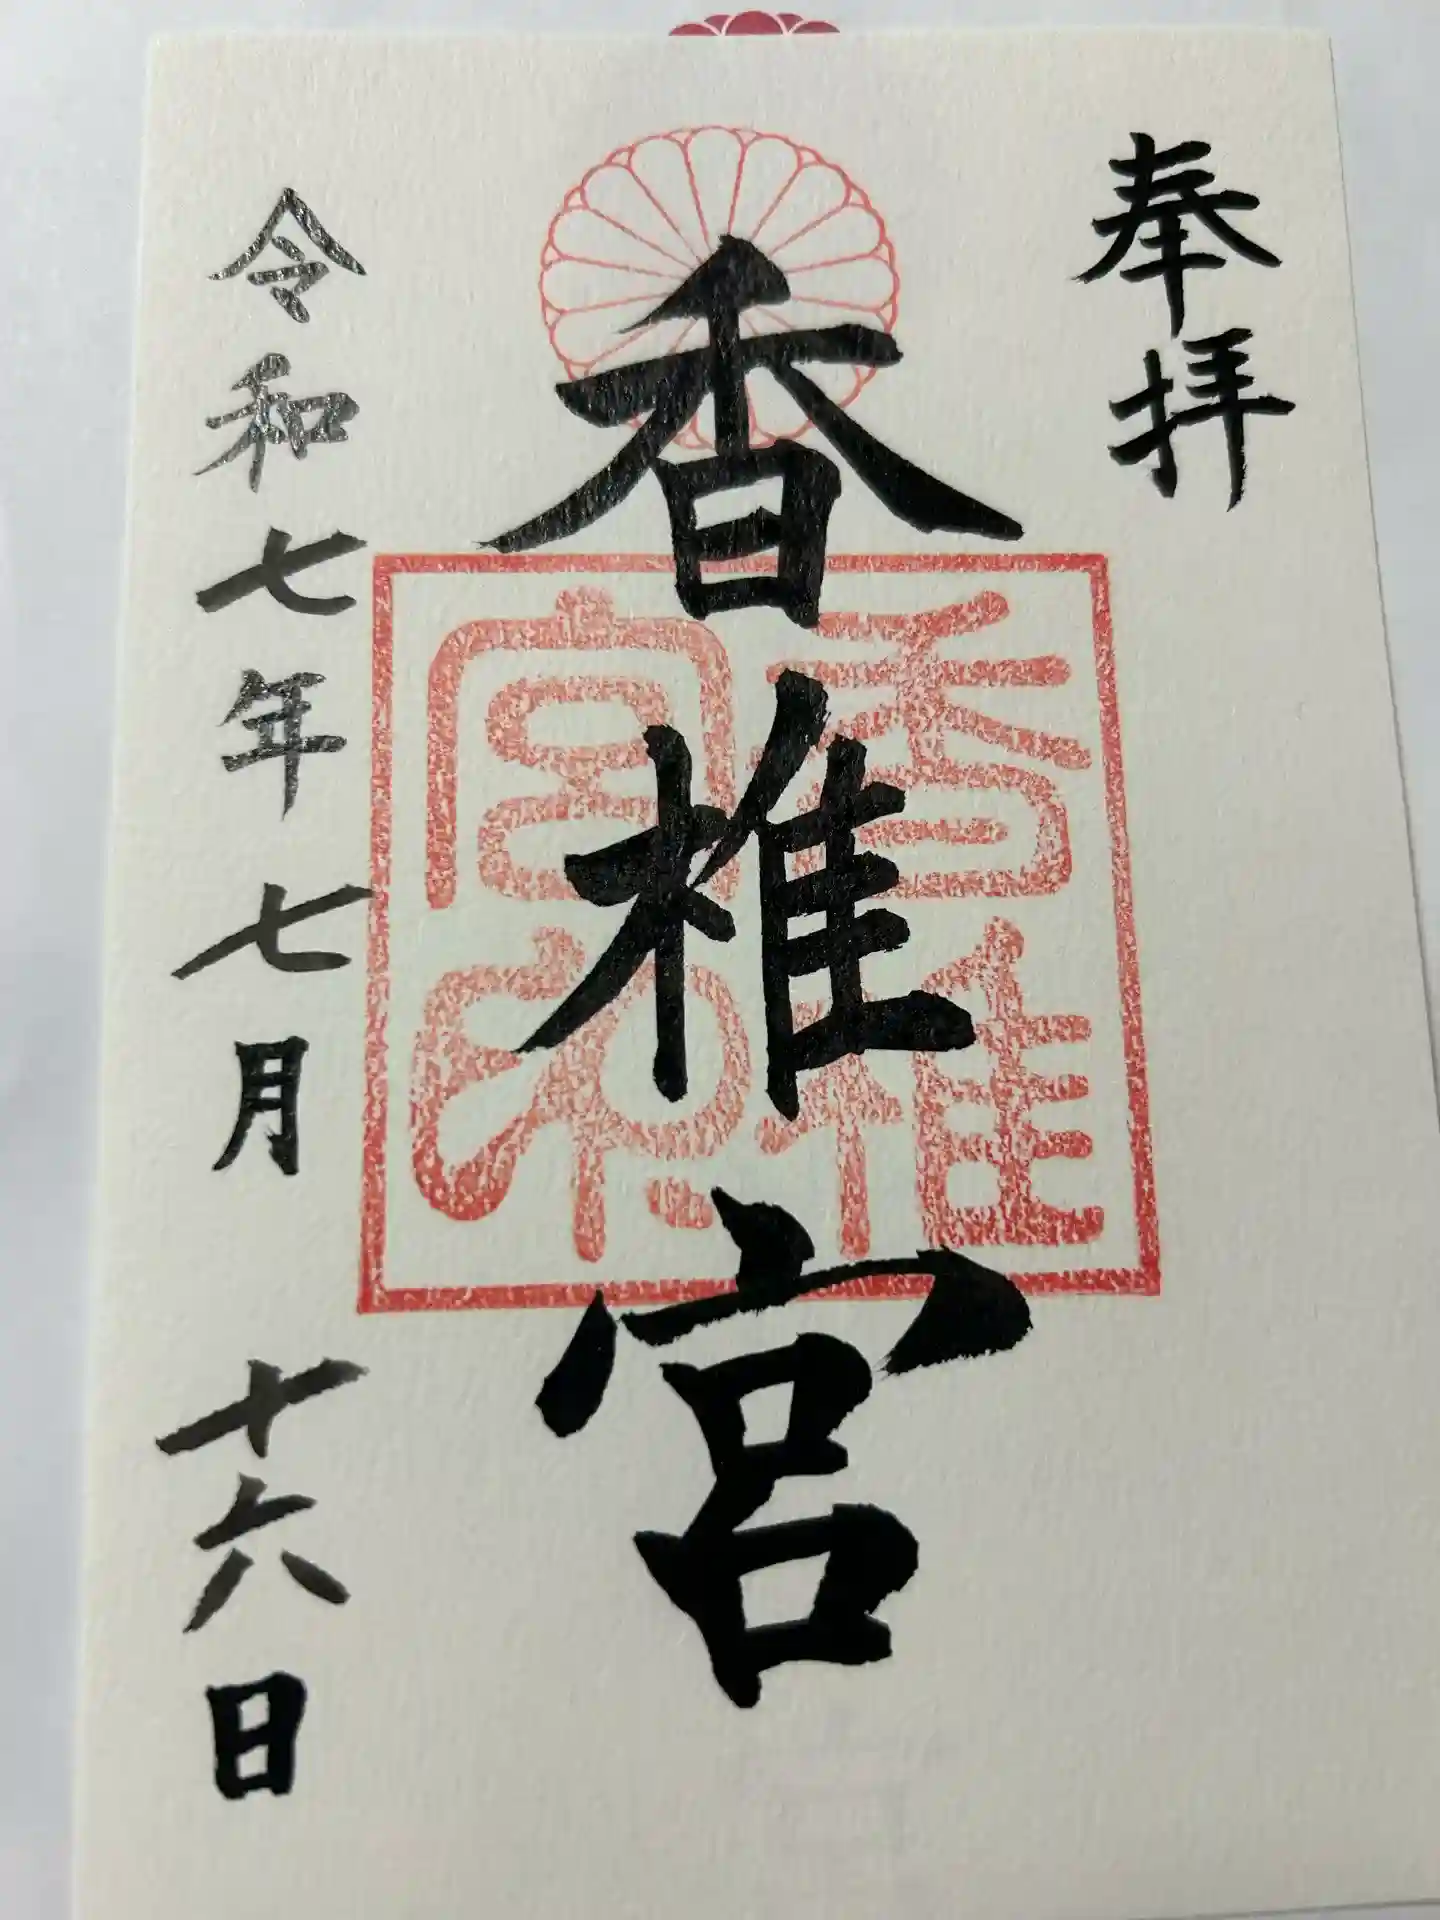 奉拝
香椎宮
香椎宮印
令和七年七月十六日